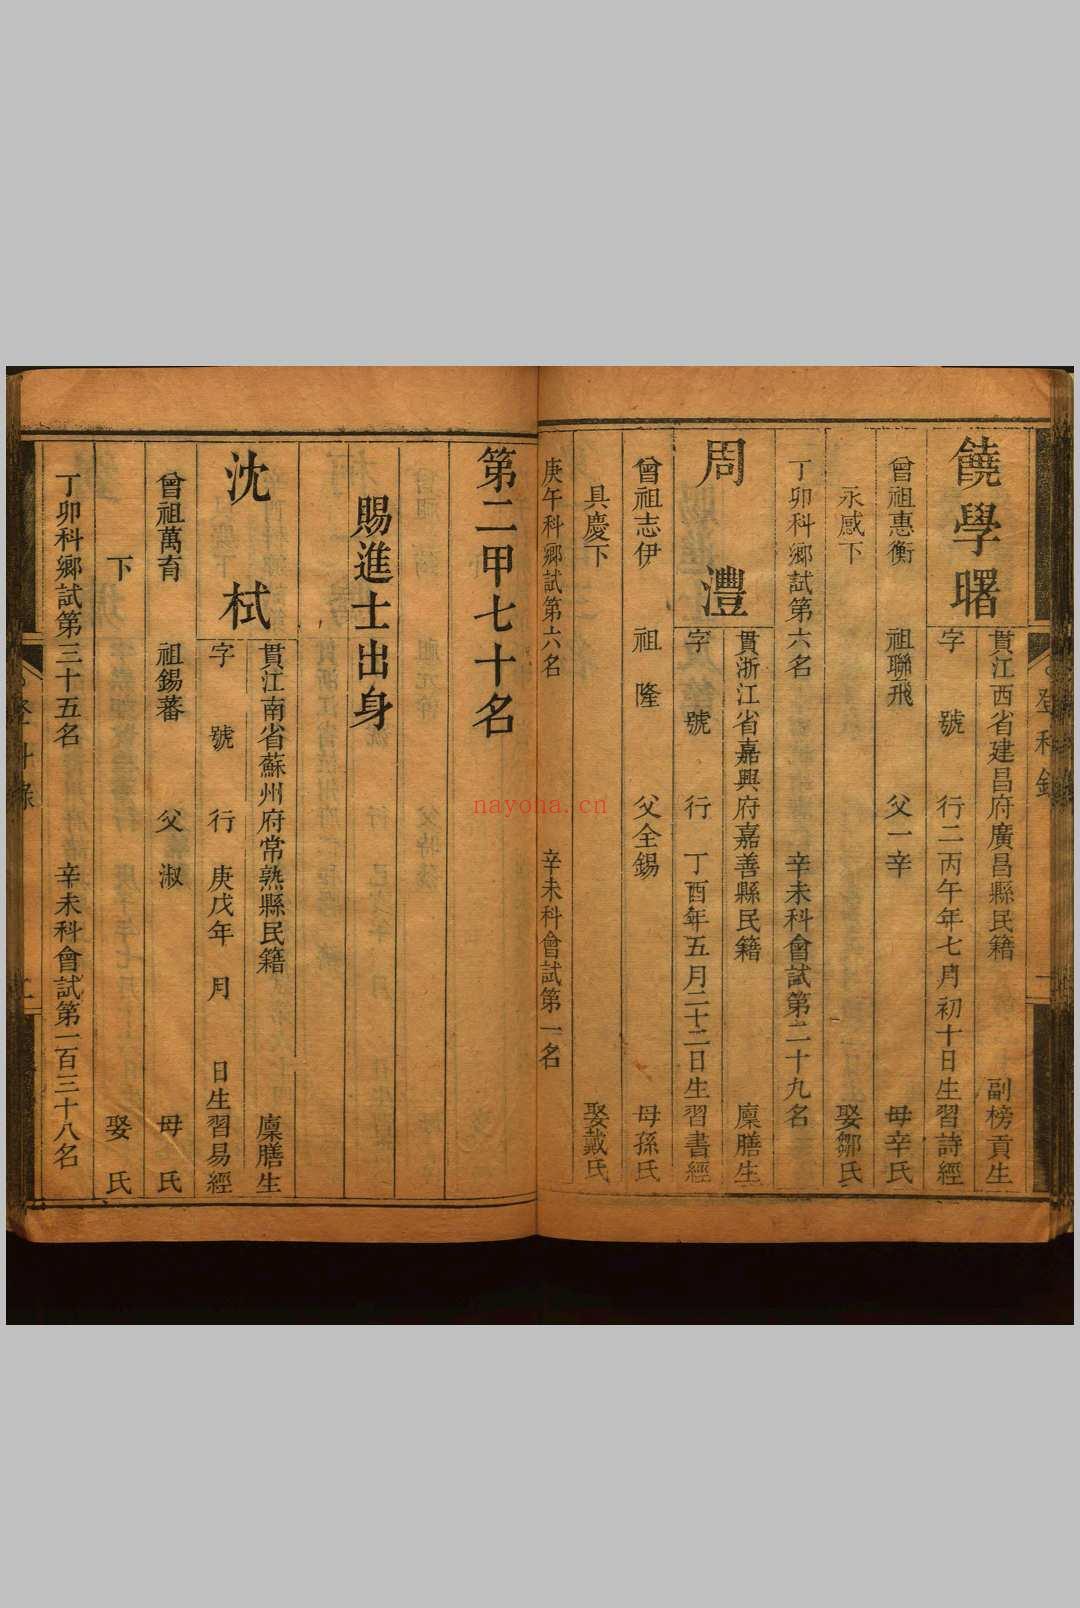 登科錄
饒學曙
貫江西省建昌府廣昌縣民籍 副榜貢生
字 號 行二丙午年七月初十日生習詩經
曾祖惠衡 祖聯飛 父一辛 母辛氏
永感下 娶鄒氏
丁卯科鄉試第六名 辛未科會試第二十九名
周澧
貫浙江省嘉興府嘉善縣民籍 廩膳生
字 號 行 丁酉年五月二十二日生習書經
曾祖志伊 祖隆 父全錫 母孫氏
具慶下 娶戴氏
庚午科鄉試第六名 辛未科會試第一名
第二甲七十名
賜進士出身
沈栻
貫江南省蘇州府常熟縣民籍 廩膳生
字 號 行 庚戌年 月 日生習易經
曾祖萬育 祖錫蕃 父淑 母 氏
下 娶 氏
丁卯科鄉試第三十五名 辛未科會試第一百三十八名
nayona.cn